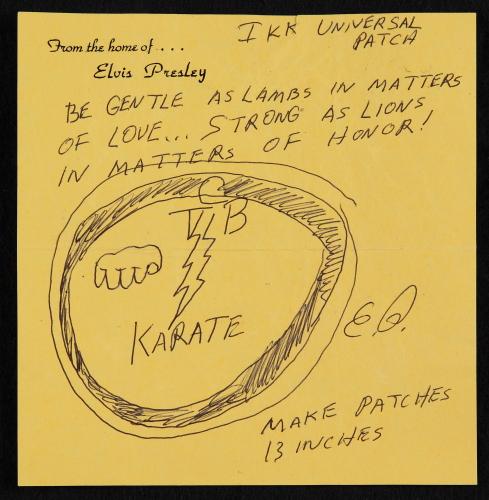 IKK UNIVERSAL
PATCH
From the home of . . .
Elvis Presley
BE GENTLE AS LAMBS IN MATTERS
OF LOVE... STRONG AS LIONS
IN MATTERS OF HONOR!
TCB
KARATE
E.P.
MAKE PATCHES
13 INCHES